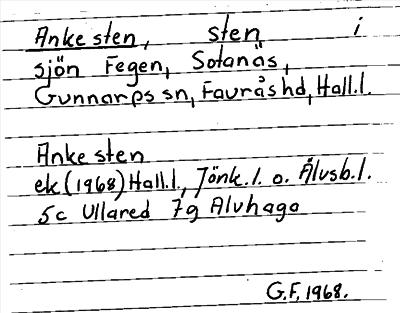 Ankesten, sten i
sjön Fegen, Sotanäs,
Gunnarps sn, Faurås hd, Hall.l.
Ankesten
ek (1968) Hall.l., Jönk.l. o. Älvsb.l.
5c Ullared 7g Alvhaga
G.F, 1968.